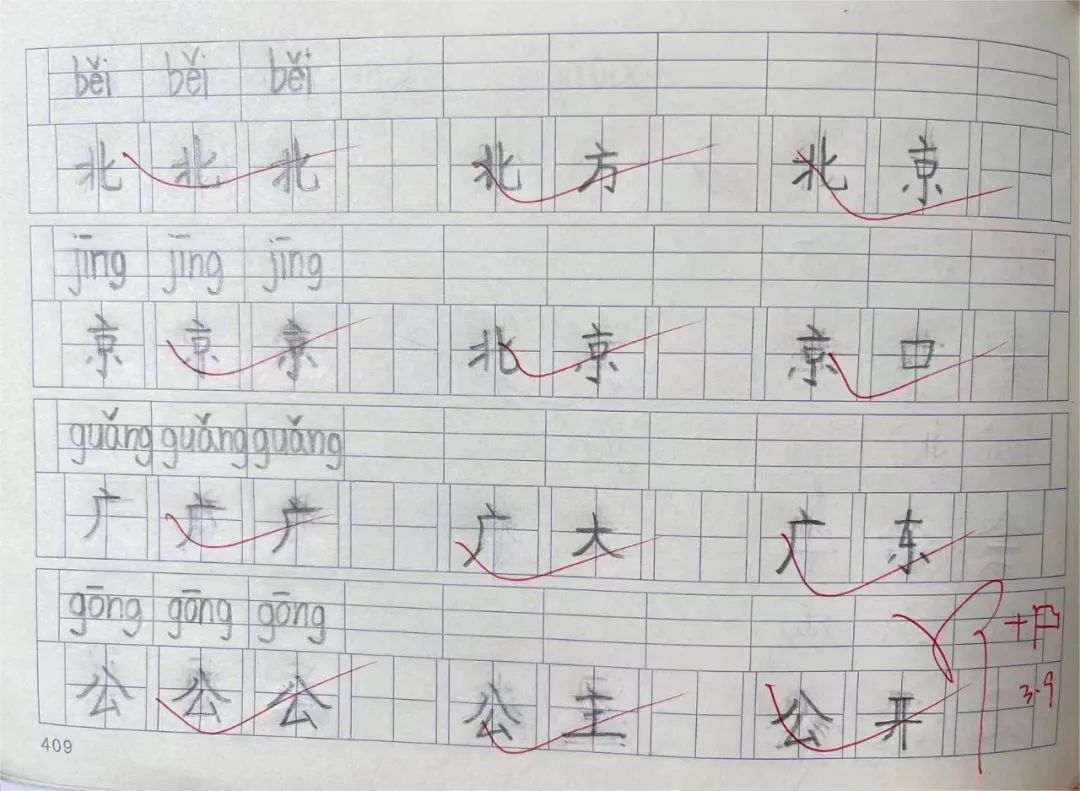 běi běi běi
北 北 北 北 方 北 京
jīng jīng jīng
京 京 京 北 京 京 口
guǎng guǎng guǎng
广 广 广 广 大 广 东
gōng gōng gōng
公 公 公 公 主 公 开
3.9
409